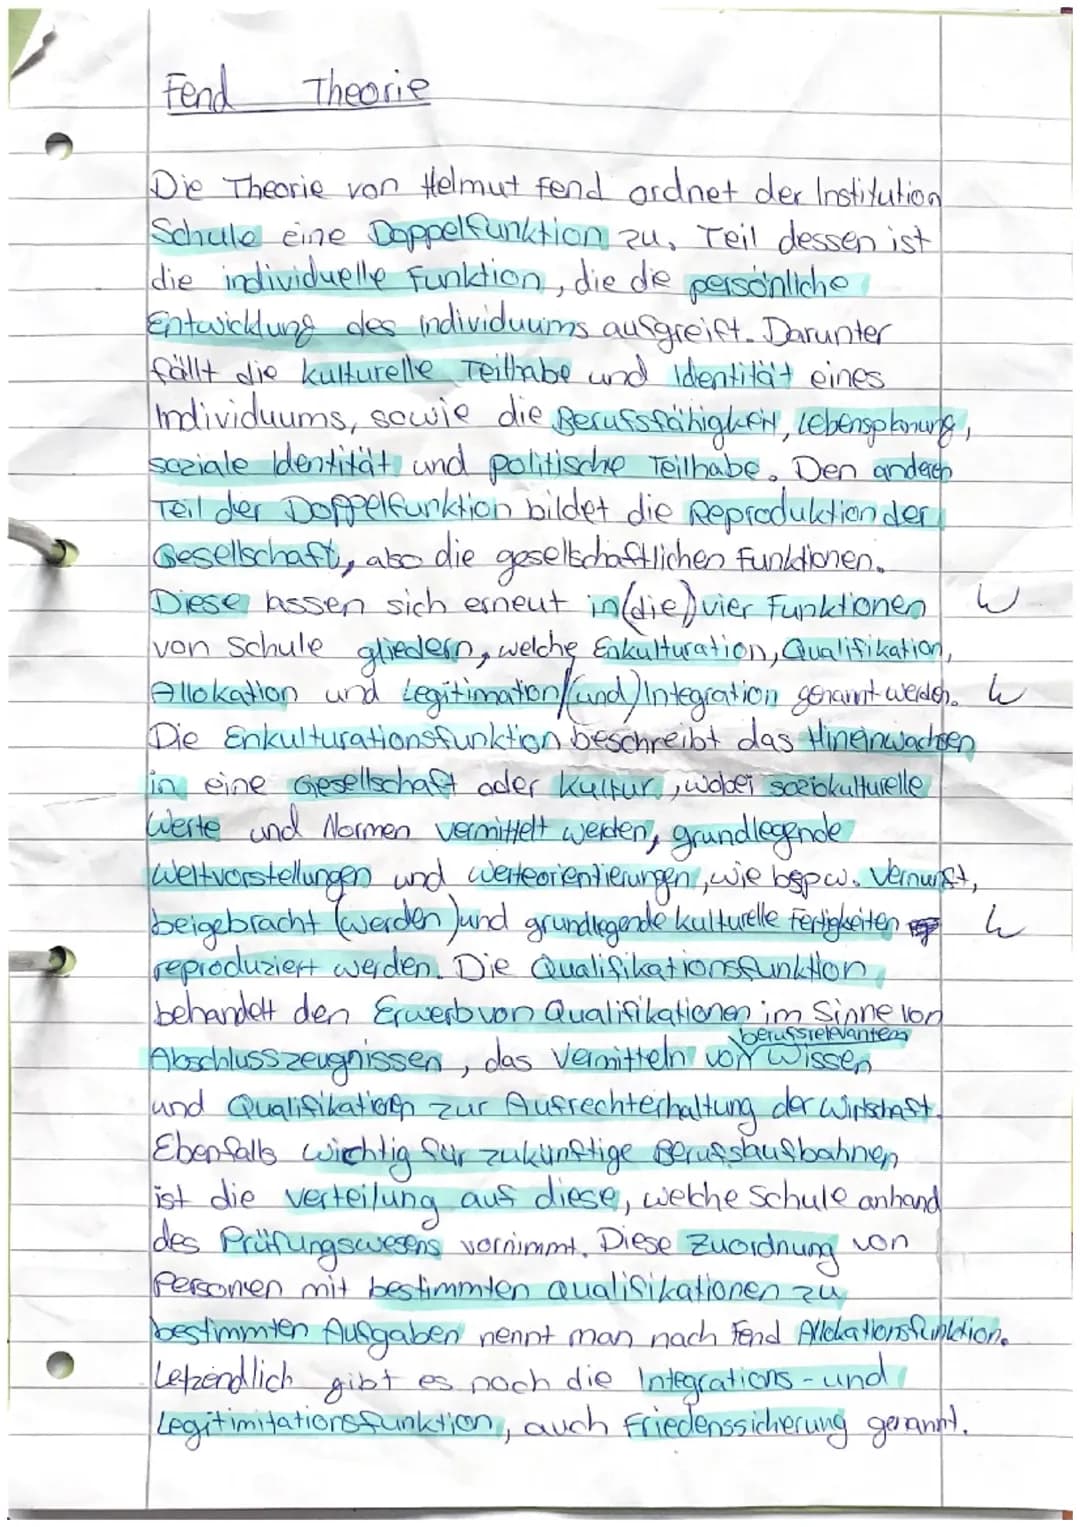 Fend Theorie
Die Theorie von Helmut Fend ordnet der Institution
Schule eine Doppelfunktion zu. Teil dessen ist
die individuelle Funktion, die die persönliche
Entwicklung des Individuums aufgreift. Darunter
fällt die kulturelle Teilhabe und Identität eines
Individuums, sowie die Berufsfähigkeit, Lebensplanung,
soziale Identität und politische Teilhabe. Den anderen
Teil der Doppelfunktion bildet die Reproduktion der
Gesellschaft, also die gesellschaftlichen Funktionen.
Diese lassen sich erneut in (die) vier Funktionen
von Schule gliedern, welche Enkulturation, Qualifikation,
Allokation und Legitimation/(und) Integration genannt werden.
Die Enkulturationsfunktion beschreibt das Hineinwachsen
in eine Gesellschaft oder Kultur, wobei soziokulturelle
Werte und Normen vermittelt werden, grundlegende
Weltvorstellungen und Werteorientierungen, wie bspw. Vernunft,
beigebracht (werden) und grundlegende kulturelle Fertigkeiten
reproduziert werden. Die Qualifikationsfunktion
behandelt den Erwerb von Qualifikationen im Sinne von
berufsrelevantem
Abschlusszeugnissen, das Vermitteln von Wissen
und Qualifikation zur Aufrechterhaltung der Wirtschaft.
Ebenfalls wichtig für zukünftige Berufslaufbahnen
ist die Verteilung auf diese, welche Schule anhand
des Prüfungswesens vornimmt. Diese Zuordnung von
Personen mit bestimmten Qualifikationen zu
bestimmten Aufgaben nennt man nach Fend Allokationsfunktion.
Letzendlich gibt es noch die Integrations- und
Legitimitationsfunktion, auch Friedenssicherung genannt.